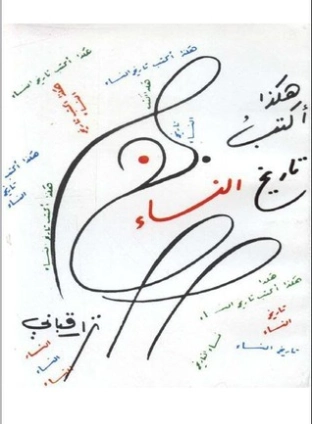 هكذا أكتب تاريخ النساء
هكذا أكتب تاريخ النساء
هكذا
أكتبُ
تاريخ
النساء
هكذا أكتب تاريخ النساء
هكذا أكتب تاريخ النساء
هكذا
أكتب تاريخ النساء
تاريخ
النساء
تاريخ النساء
نزار قباني
النساء
النساء
النساء